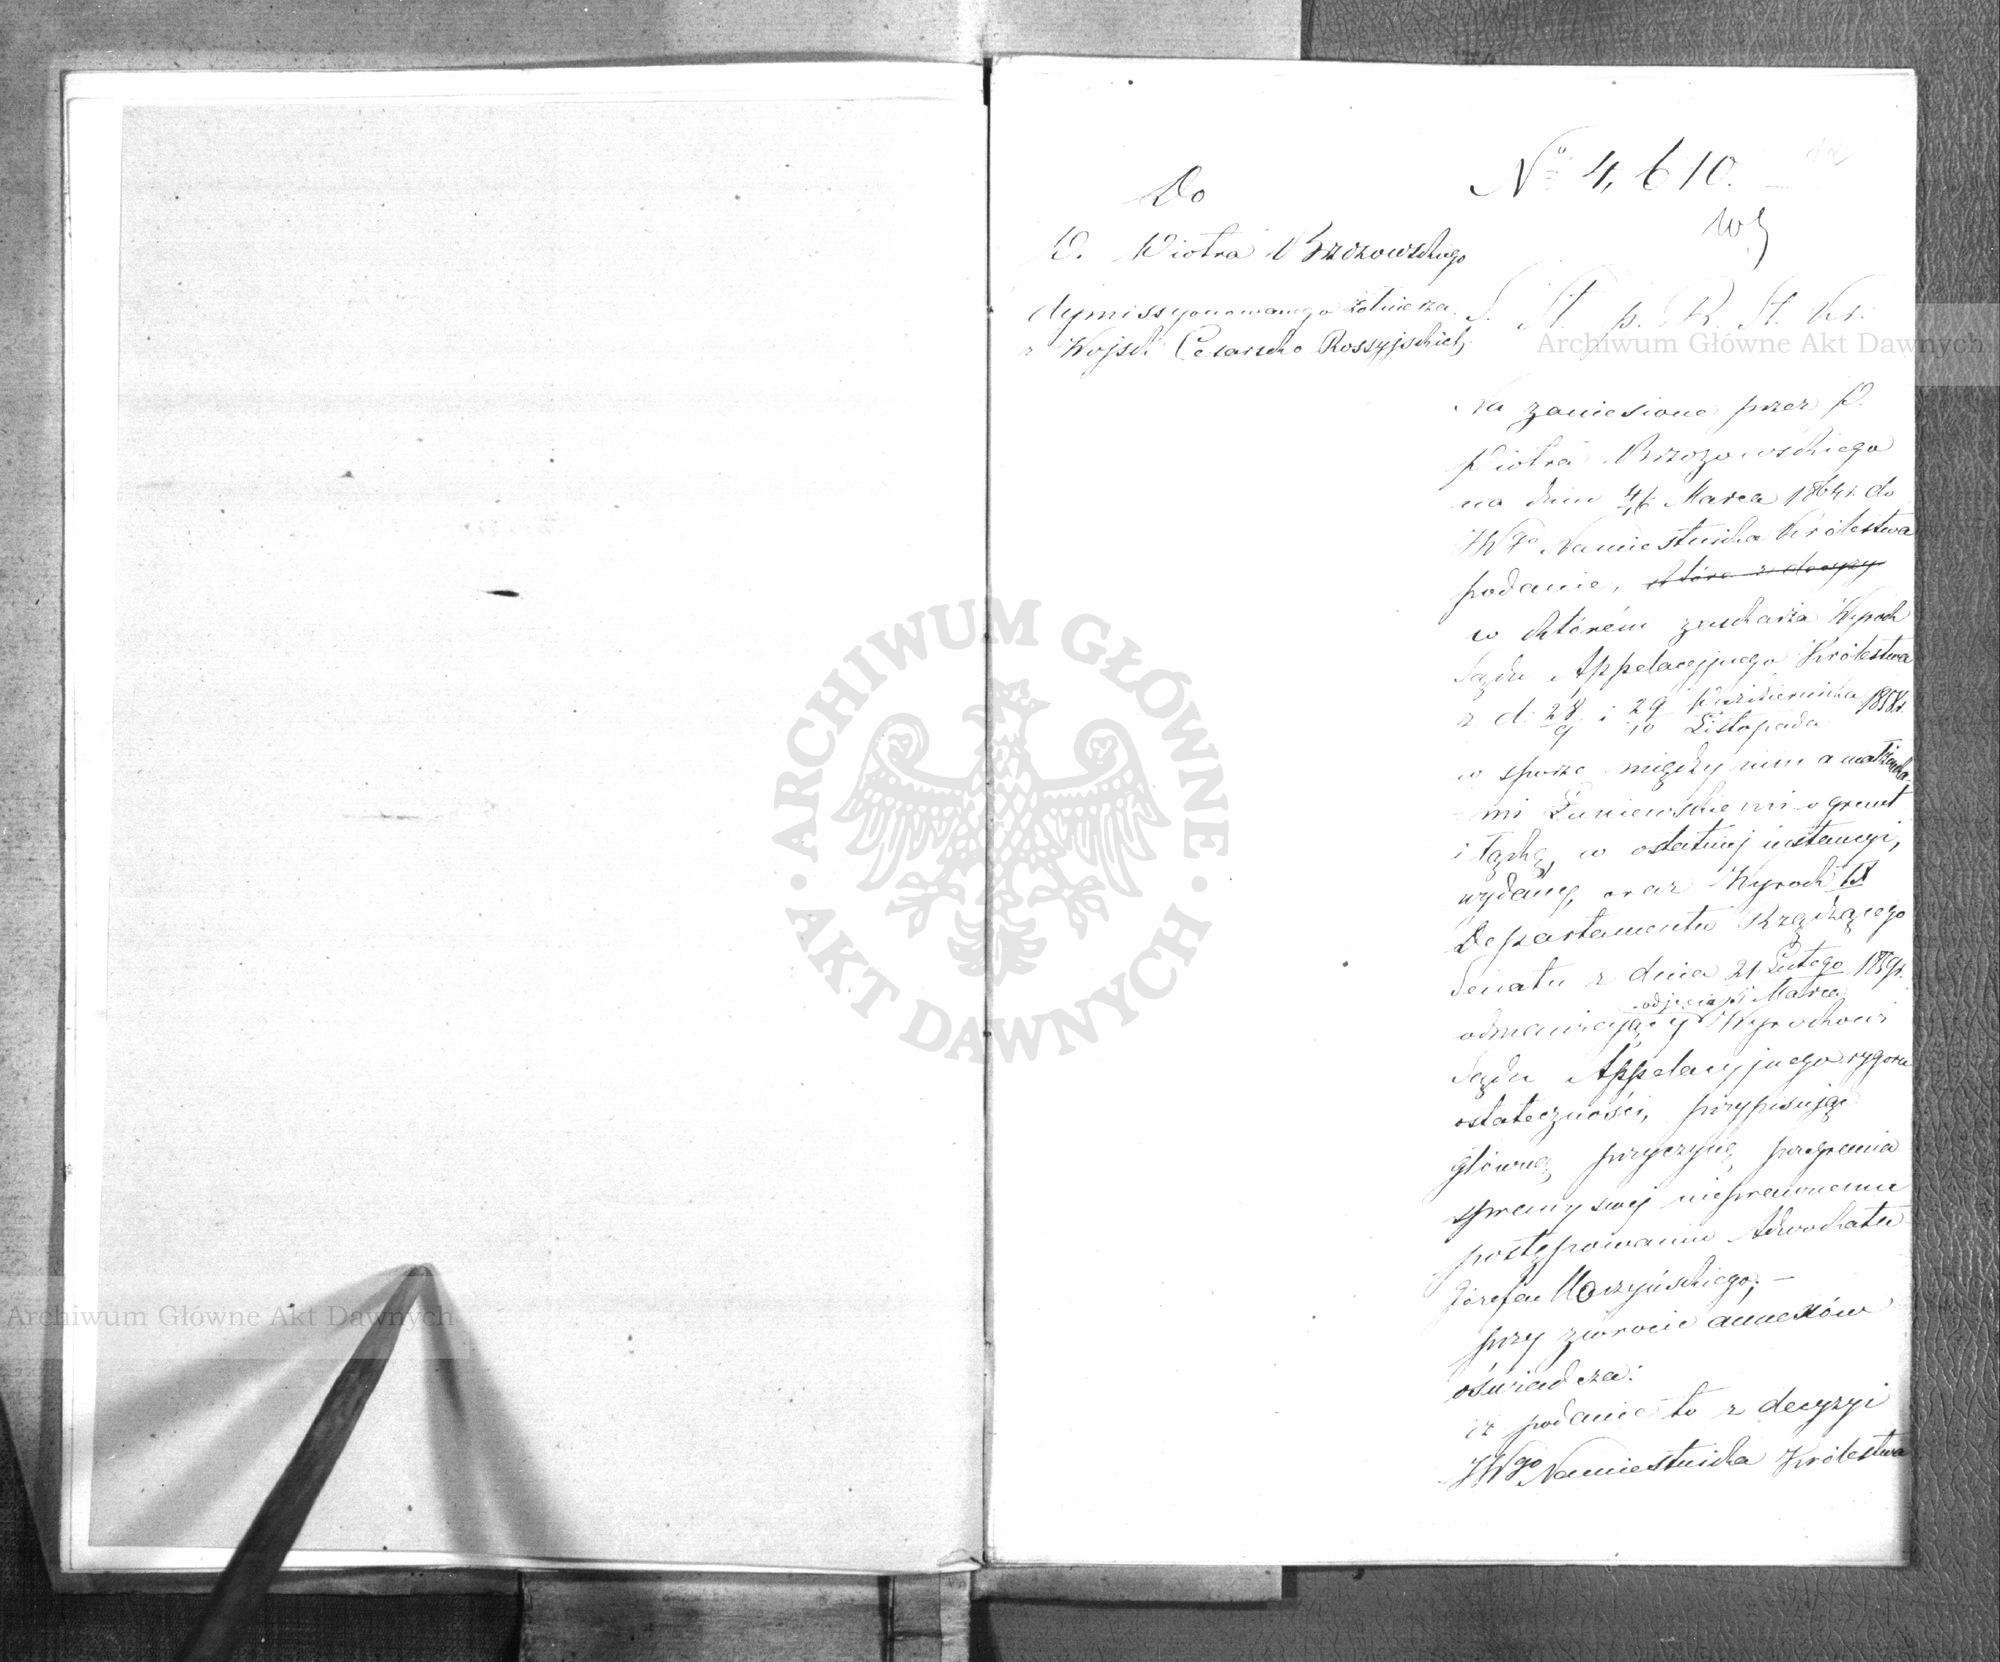 Nº 4,610.
Do
P. Piotra Brzozowskiego
dymissyonowanego żołnierza
z Wojsk Cesarsko Rossyjskich
S. St. p. R. St. Kr.
Na zaniesione przez P.
Piotra Brzozowskiego
na dniu 4/16 Marca 1864 r. do
JWgo Namiestnika Królestwa
podanie, które z decyzy
w którém zaskarża Wyrok
Sądu Appelacyjnego Królestwa
z d. 28/9 i 29/10 Października/Listopada 1858 r.
w sporze między nim a małżonka-
mi Łuniewskiemi o grunt
i łąkę, w ostatniej instancyi,
wydany, oraz Wyrok IX
Departamentu Rządzącego
Senatu z dnia 21 Lutego 1859 r.
odjęcia Marca
odmawiający Wyrokowi
Sądu Appelacyjnego rygoru
ostateczności, przypisując
główną przyczynę przegrania
sprawy swej nieprawnemu
postępowaniu Adwokata
Józefa
przy zwrocie annexów
oświadcza:
iż podanie to z decyzyi
JWgo Namiestnika Królestwa
Archiwum Główne Akt Dawnych
ARCHIWUM GŁÓWNE AKT DAWNYCH
Archiwum Główne Akt Dawnych